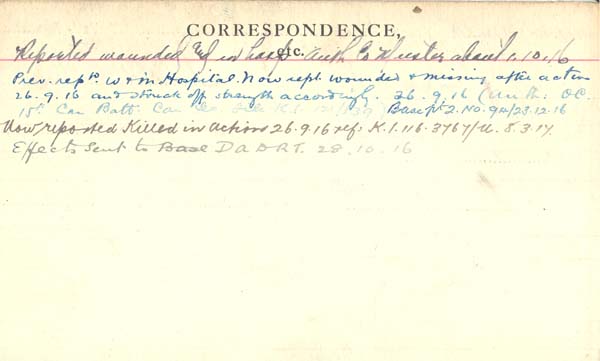 CORRESPONDENCE,
etc.
Reported wounded in hosp. Auth Co Muster about 1.10.16
Prev. reptd. w & in Hospital. Now rept. wounded & missing after action
26.9.16 and struck off strength accordingly. 26.9.16 (Auth: OC.
15th Can Batt. Can Base pt 2. No. 94/23.12.16
Now reported Killed in Action 26.9.16 ref: K.1.116.3767/U. 8.3.17.
Effects Sent to Base D A D R T. 28.10.16